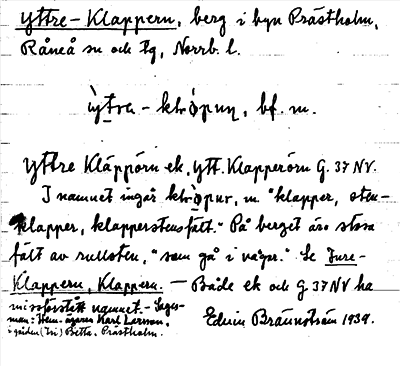 Yttre-Klappern, berg i byn Prästholm,
Råneå sn och tg, Norrb. l.
ỳtrа - ktròpun, bf. m.
Yttre Kläppörn ek, Ytt. Klapperörn G. 37 NV.
I namnet ingår ktròpur, m. "klapper, sten-
klapper, klapperstensfält." På berget äro stora
fält av rullsten, "som gå i vågor." Se Jure-
Klappern, Klappern. — Både ek och G 37 NV ha
missförstått namnet. - Sages-
man: Hem.ägaren Karl Larsson,
i gården (tri) Betta, Prästholm.
Edvin Brännström 1939.